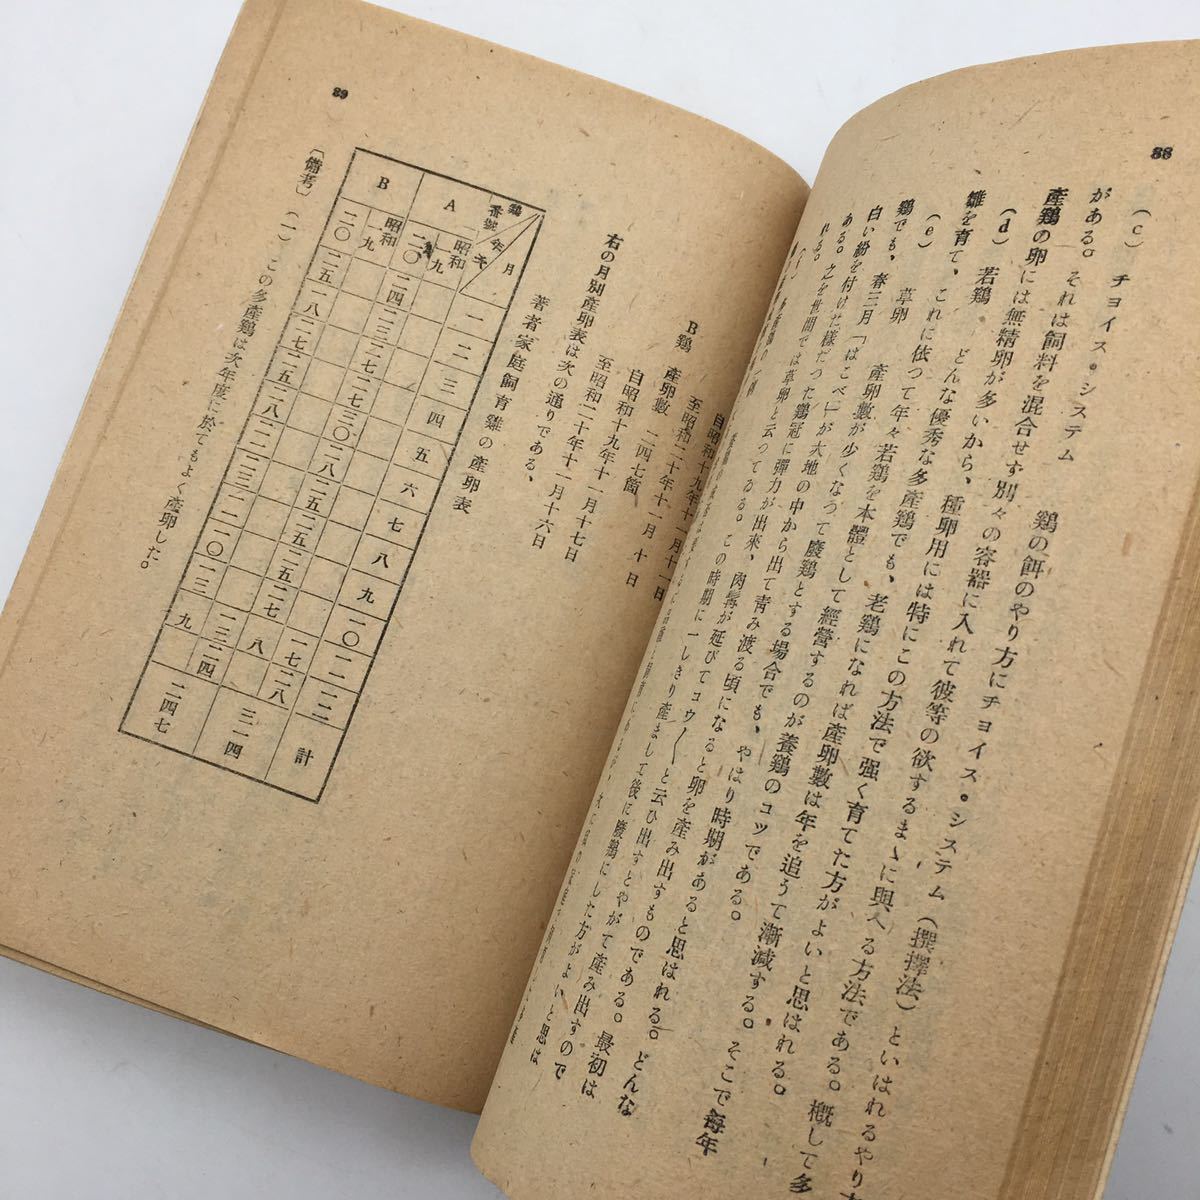 88
(c) チヨイス・システム 鶏の餌のやり方にチヨイス・システム(撰擇法)といはれるやり方
がある。それは飼料を混合せず別々の容器に入れて彼等の欲するまゝに與へる方法である。概して多
産鶏の卵には無精卵が多いから、種卵用には特にこの方法で强く育てた方がよいと思はれる。
(d) 若鶏 どんな優秀な多産鶏でも、老鶏になれば産卵數は年を追うて漸減する。そこで毎年
雛を育て、これに依つて年々若鶏を本體として經營するのが養鶏のコツである。
(e) 草卵 産卵數が少くなつて廢鶏とする場合でも、やはり時期があると思はれる。どんな
鶏でも、春三月「はこべ」が大地の中から出て靑み渡る頃になると卵を産み出すものである。最初は
白い粉を付けた樣だつた鶏冠に彈力が出來、肉髯が延びてコウ〱と云ひ出すとやがて産み出すので
ある。之を世間では草卵と云つてゐる。この時期に一しきり産まして後に廢鶏にした方がよいと思は
れる。
自昭和十九年十一月十一日
至昭和二十年十一月十日
B鶏 産卵數 二四七箇
自昭和十九年十一月十七日
至昭和二十年十一月十六日
右の月別産卵表は次の通りである、
著者家庭飼育雞の産卵表
鶏番號 年 月 一 二 三 四 五 六 七 八 九 一〇 一一 一二 計
A 昭和一九 一七 二八
二〇 二四 二三 二七 二七 三〇 二八 二五 二五 二五 二七 八 三一四
B 昭和一九 一三 二四
二〇 二五 一八 二七 二五 二八 二二 二三 二一 二〇 一三 九 二四七
〔備考〕 (一)、この多産鶏は次年度に於てもよく産卵した。
89